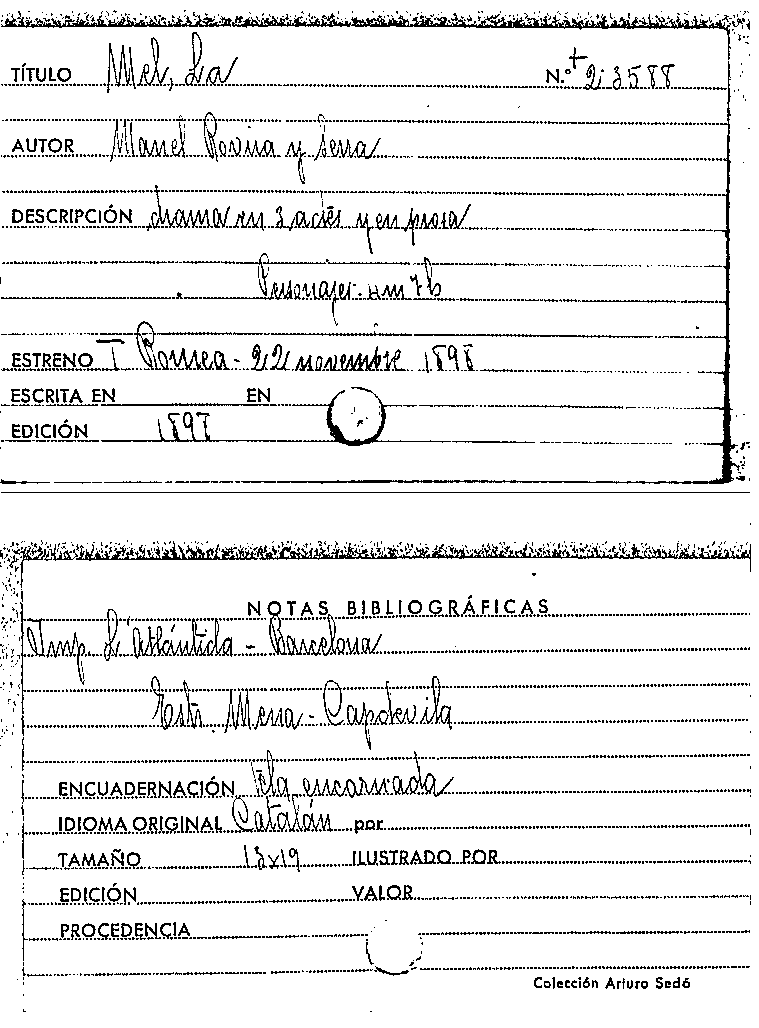 TÍTULO Mel, La N.º + 23588
AUTOR Manel Rovira y Serra
DESCRIPCIÓN drama en 3 actes y en prosa
Personajes. 4m 7h
ESTRENO T Romea - 22 novembre 1898
ESCRITA EN EN
EDICIÓN 1897
NOTAS BIBLIOGRÁFICAS
Imp. L'Atlántida - Barcelona
Estr. Mena - Capdevila
ENCUADERNACIÓN tela encarnada
IDIOMA ORIGINAL Catalán por
TAMAÑO 13x19 ILUSTRADO POR
EDICIÓN VALOR
PROCEDENCIA
Colección Arturo Sedó